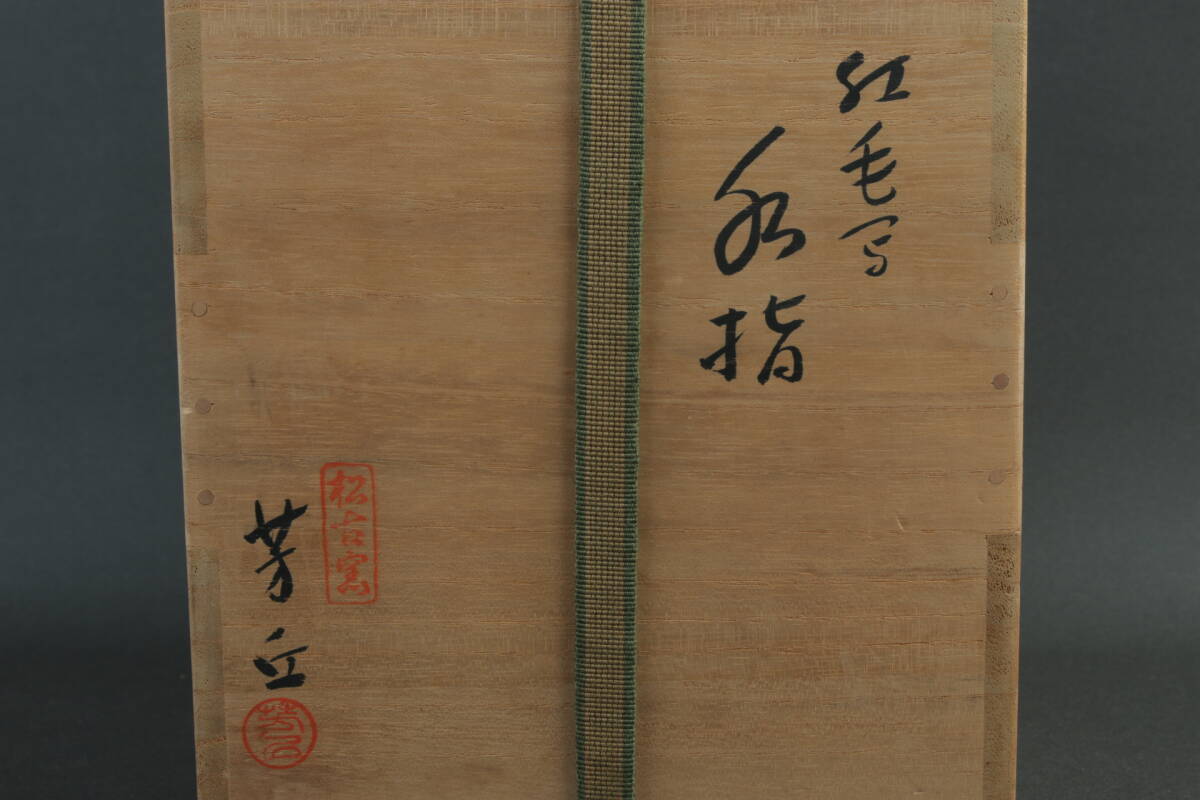 紅毛写
水指
松古窯
芳丘
芳丘